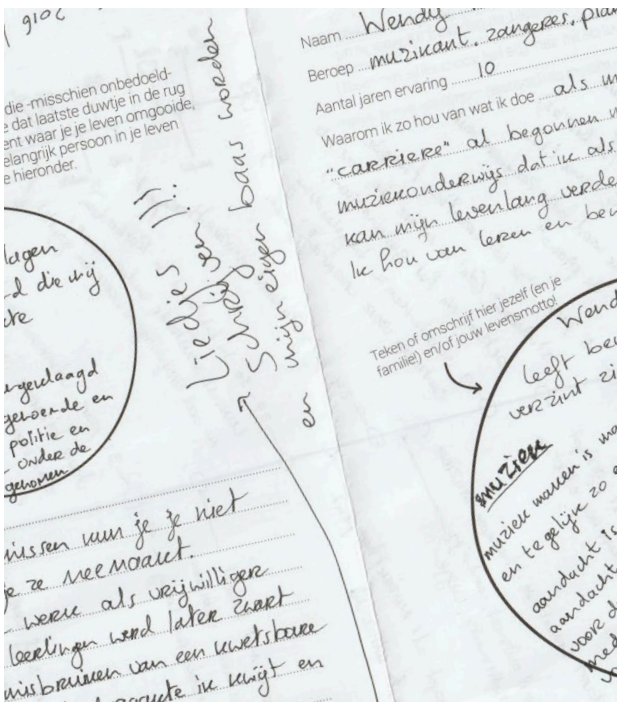 2016
die -misschien onbedoeld-
e dat laatste duwtje in de rug
ent waar je je leven omgooide,
elangrijk persoon in je leven
e hieronder.
lagen
die mij
gevoerde en
politie en
onder de
genomen
Liedjes !!!
en mijn eigen baas worden
nissen kun je je niet
je ze meemaakt.
werk als vrijwilliger
leerlingen werd later zwart
misbruiken van een kwetsbare
ik kwijt en
Naam Wendy
Beroep muzikant, zangeres, pian
Aantal jaren ervaring 10
Waarom ik zo hou van wat ik doe als m
"carriere" al begonnen
muziekonderwijs dat ik als
kan mijn levenlang verde
Ik hou van leren en ben
Teken of omschrijf hier jezelf (en je
familie!) en/of jouw levensmotto!
Wendy
leeft be
verzint zi
muziek
muziek maken is ma
en tegelijk zo e
aandacht is
aandacht
voor d
med